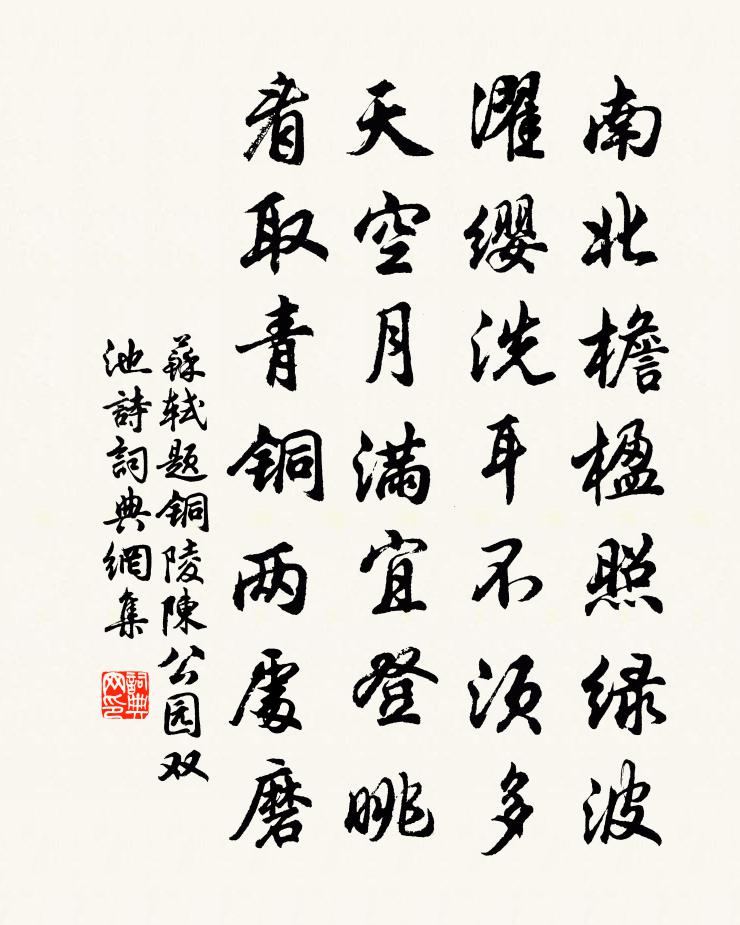 南北檐楹照绿波
濯缨洗耳不须多
天空月满宜登眺
看取青铜两處磨
蘇轼题铜陵陳公园双
池詩詞典網集
詞典
网印